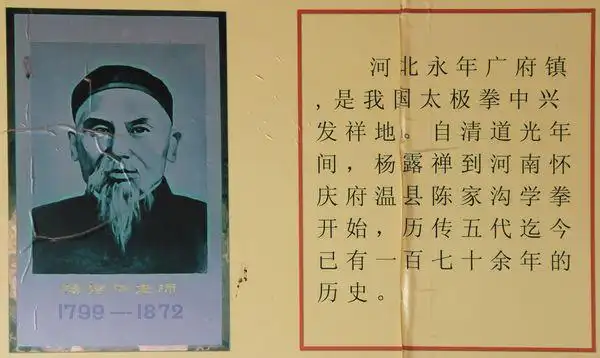 1799—1872
河北永年广府镇
,是我国太极拳中兴
发祥地。自清道光年
间，杨露禅到河南怀
庆府温县陈家沟学拳
开始，历传五代迄今
已有一百七十余年的
历史。